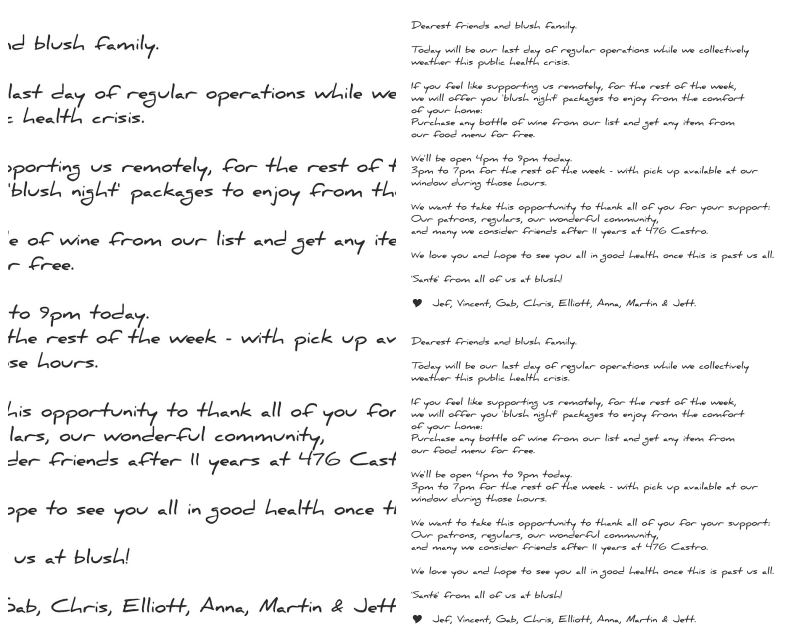 nd blush family.
last day of regular operations while we
health crisis.
pporting us remotely, for the rest of t
'blush night' packages to enjoy from th
e of wine from our list and get any ite
r free.
to 9pm today.
the rest of the week - with pick up av
se hours.
his opportunity to thank all of you for
lars, our wonderful community,
der friends after 11 years at 476 Cast
ope to see you all in good health once t
us at blush!
Gab, Chris, Elliott, Anna, Martin & Jett
Dearest friends and blush family.
Today will be our last day of regular operations while we collectively
weather this public health crisis.
If you feel like supporting us remotely, for the rest of the week,
we will offer you 'blush night' packages to enjoy from the comfort
of your home:
Purchase any bottle of wine from our list and get any item from
our food menu for free.
We'll be open 4pm to 9pm today.
3pm to 7pm for the rest of the week - with pick up available at our
window during those hours.
We want to take this opportunity to thank all of you for your support:
Our patrons, regulars, our wonderful community,
and many we consider friends after 11 years at 476 Castro.
We love you and hope to see you all in good health once this is past us all.
'Santé' from all of us at blush!
♥ Jef, Vincent, Gab, Chris, Elliott, Anna, Martin & Jett.
Dearest friends and blush family.
Today will be our last day of regular operations while we collectively
weather this public health crisis.
If you feel like supporting us remotely, for the rest of the week,
we will offer you 'blush night' packages to enjoy from the comfort
of your home:
Purchase any bottle of wine from our list and get any item from
our food menu for free.
We'll be open 4pm to 9pm today.
3pm to 7pm for the rest of the week - with pick up available at our
window during those hours.
We want to take this opportunity to thank all of you for your support:
Our patrons, regulars, our wonderful community,
and many we consider friends after 11 years at 476 Castro.
We love you and hope to see you all in good health once this is past us all.
'Santé' from all of us at blush!
♥ Jef, Vincent, Gab, Chris, Elliott, Anna, Martin & Jett.